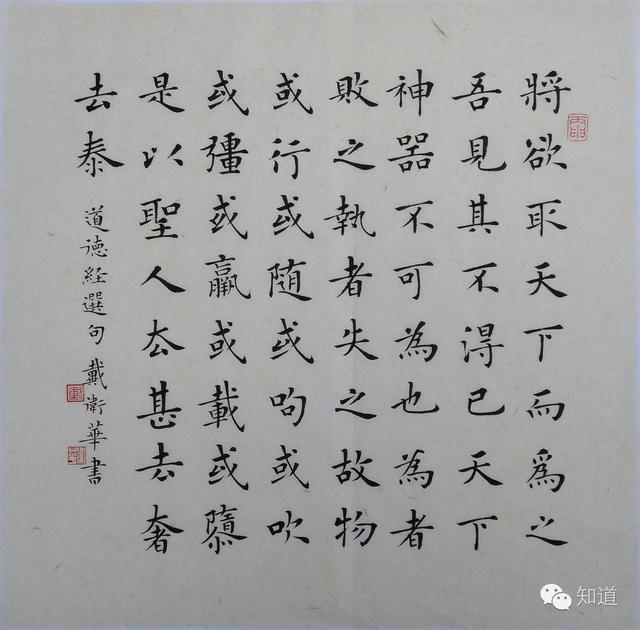 將欲取天下而為之
吾見其不得已天下
神器不可為也為者
敗之執者失之故物
或行或随或呴或吹
或彊或羸或載或隳
是以聖人去甚去奢
去泰
道德経選句 戴衛華書
知道